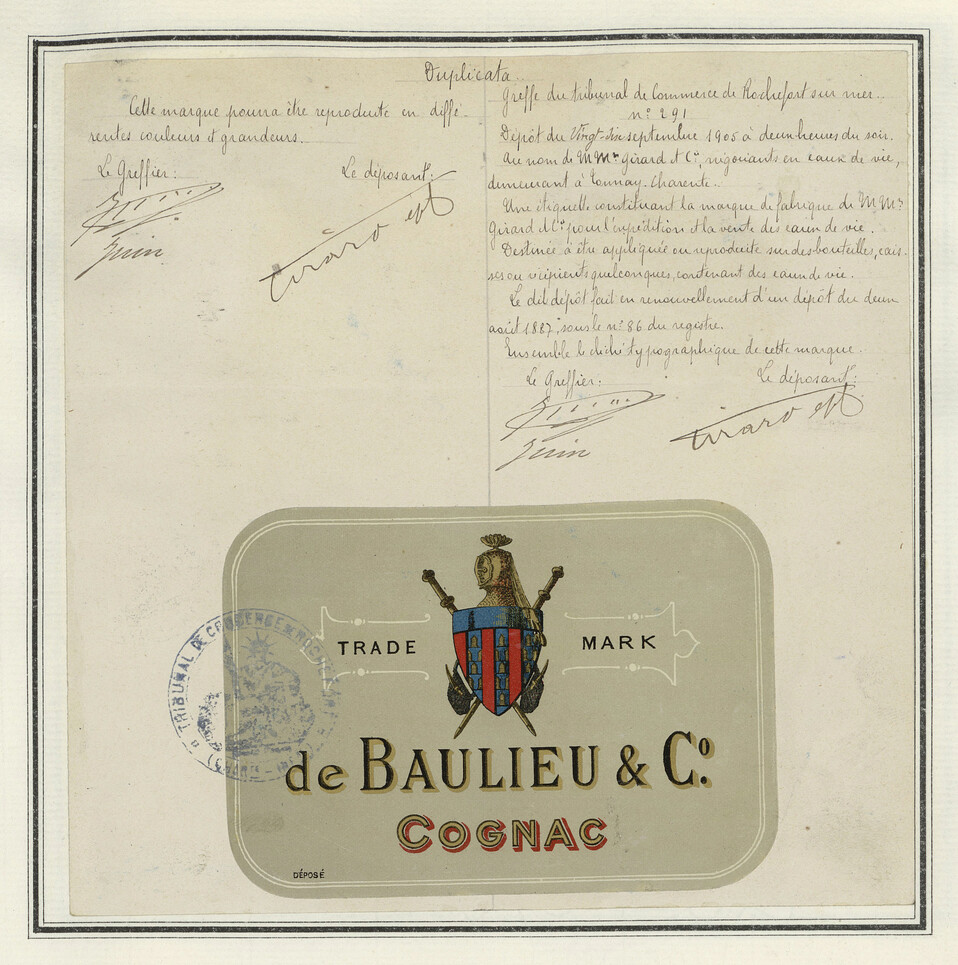 Duplicata
Cette marque pourra être reproduite en diffé-
rentes couleurs et grandeurs.
Le Greffier:
Le déposant:
Girard et Cº
Greffe du tribunal de Commerce de Rochefort sur mer.
nº 291
Dépôt du Vingt-six septembre 1905 à deux heures du soir.
Au nom de M Mrs Girard et Cº, négociants en eaux de vie,
demeurant à Tonnay-Charente.
Une étiquette constituant la marque de fabrique de M Mrs
Girard et Cº pour l'expédition et la vente des eaux de vie.
Destinée à être appliquée ou reproduite sur des bouteilles, cais-
ses ou récipients quelconques, contenant des eaux de vie.
Le dit dépôt fait en renouvellement d'un dépôt du deux
août 1887, sous le nº 86 du registre.
Ensemble le cliché typographique de cette marque.
Le Greffier:
Le déposant:
Girard et Cº
TRADE MARK
de BAULIEU & Cº.
COGNAC
DÉPOSÉ
TRIBUNAL DE COMMERCE DE ROCHEFORT